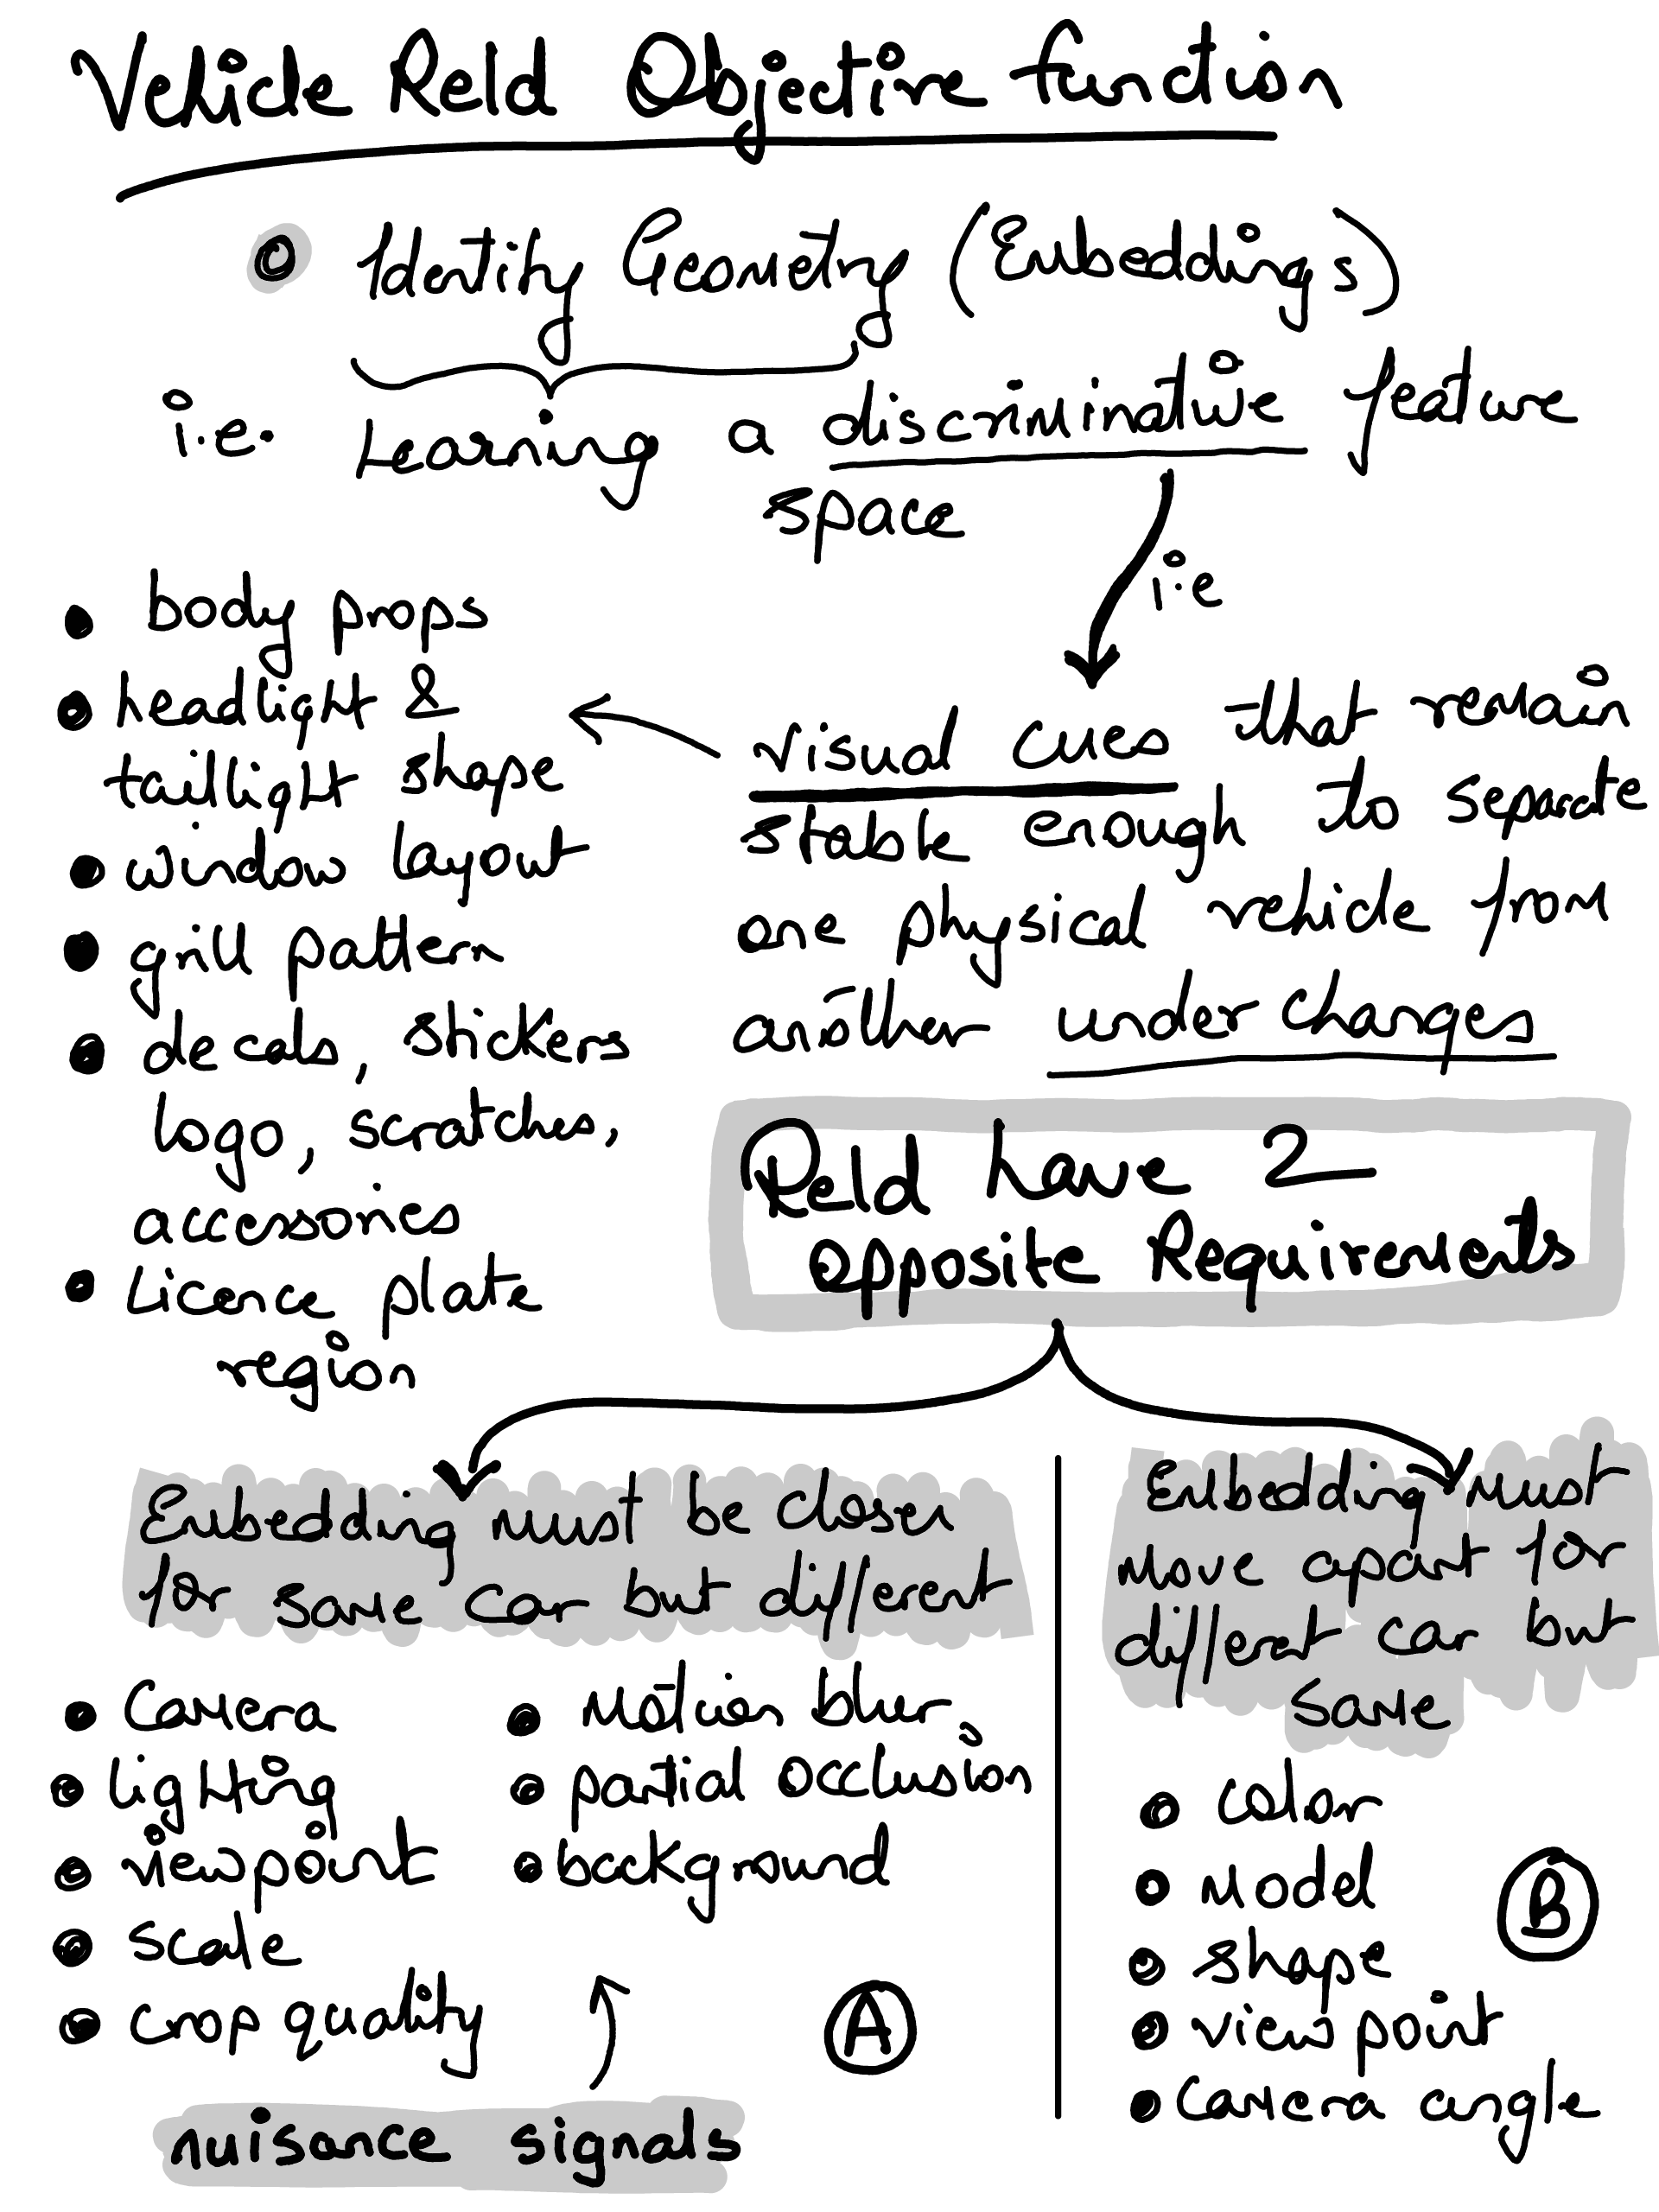 Vehicle ReId Objective function
Identity Geometry (Embeddings)
i.e. Learning a discriminative feature
space
i.e
visual cues that remain
stable enough to separate
one physical vehicle from
another under changes
• body props
• headlight &
taillight shape
• window layout
• grill pattern
• decals, stickers
logo, scratches,
accessories
• Licence plate
region
ReId have 2
opposite Requirements
Embedding must be closer
for same car but different
• Camera
• lighting
• viewpoint
• scale
• crop quality
• Motion blur,
• partial occlusion
• background
A
nuisance signals
Embedding must
move apart for
differet car but
same
• color
• Model
• shape
• view point
• camera angle
B